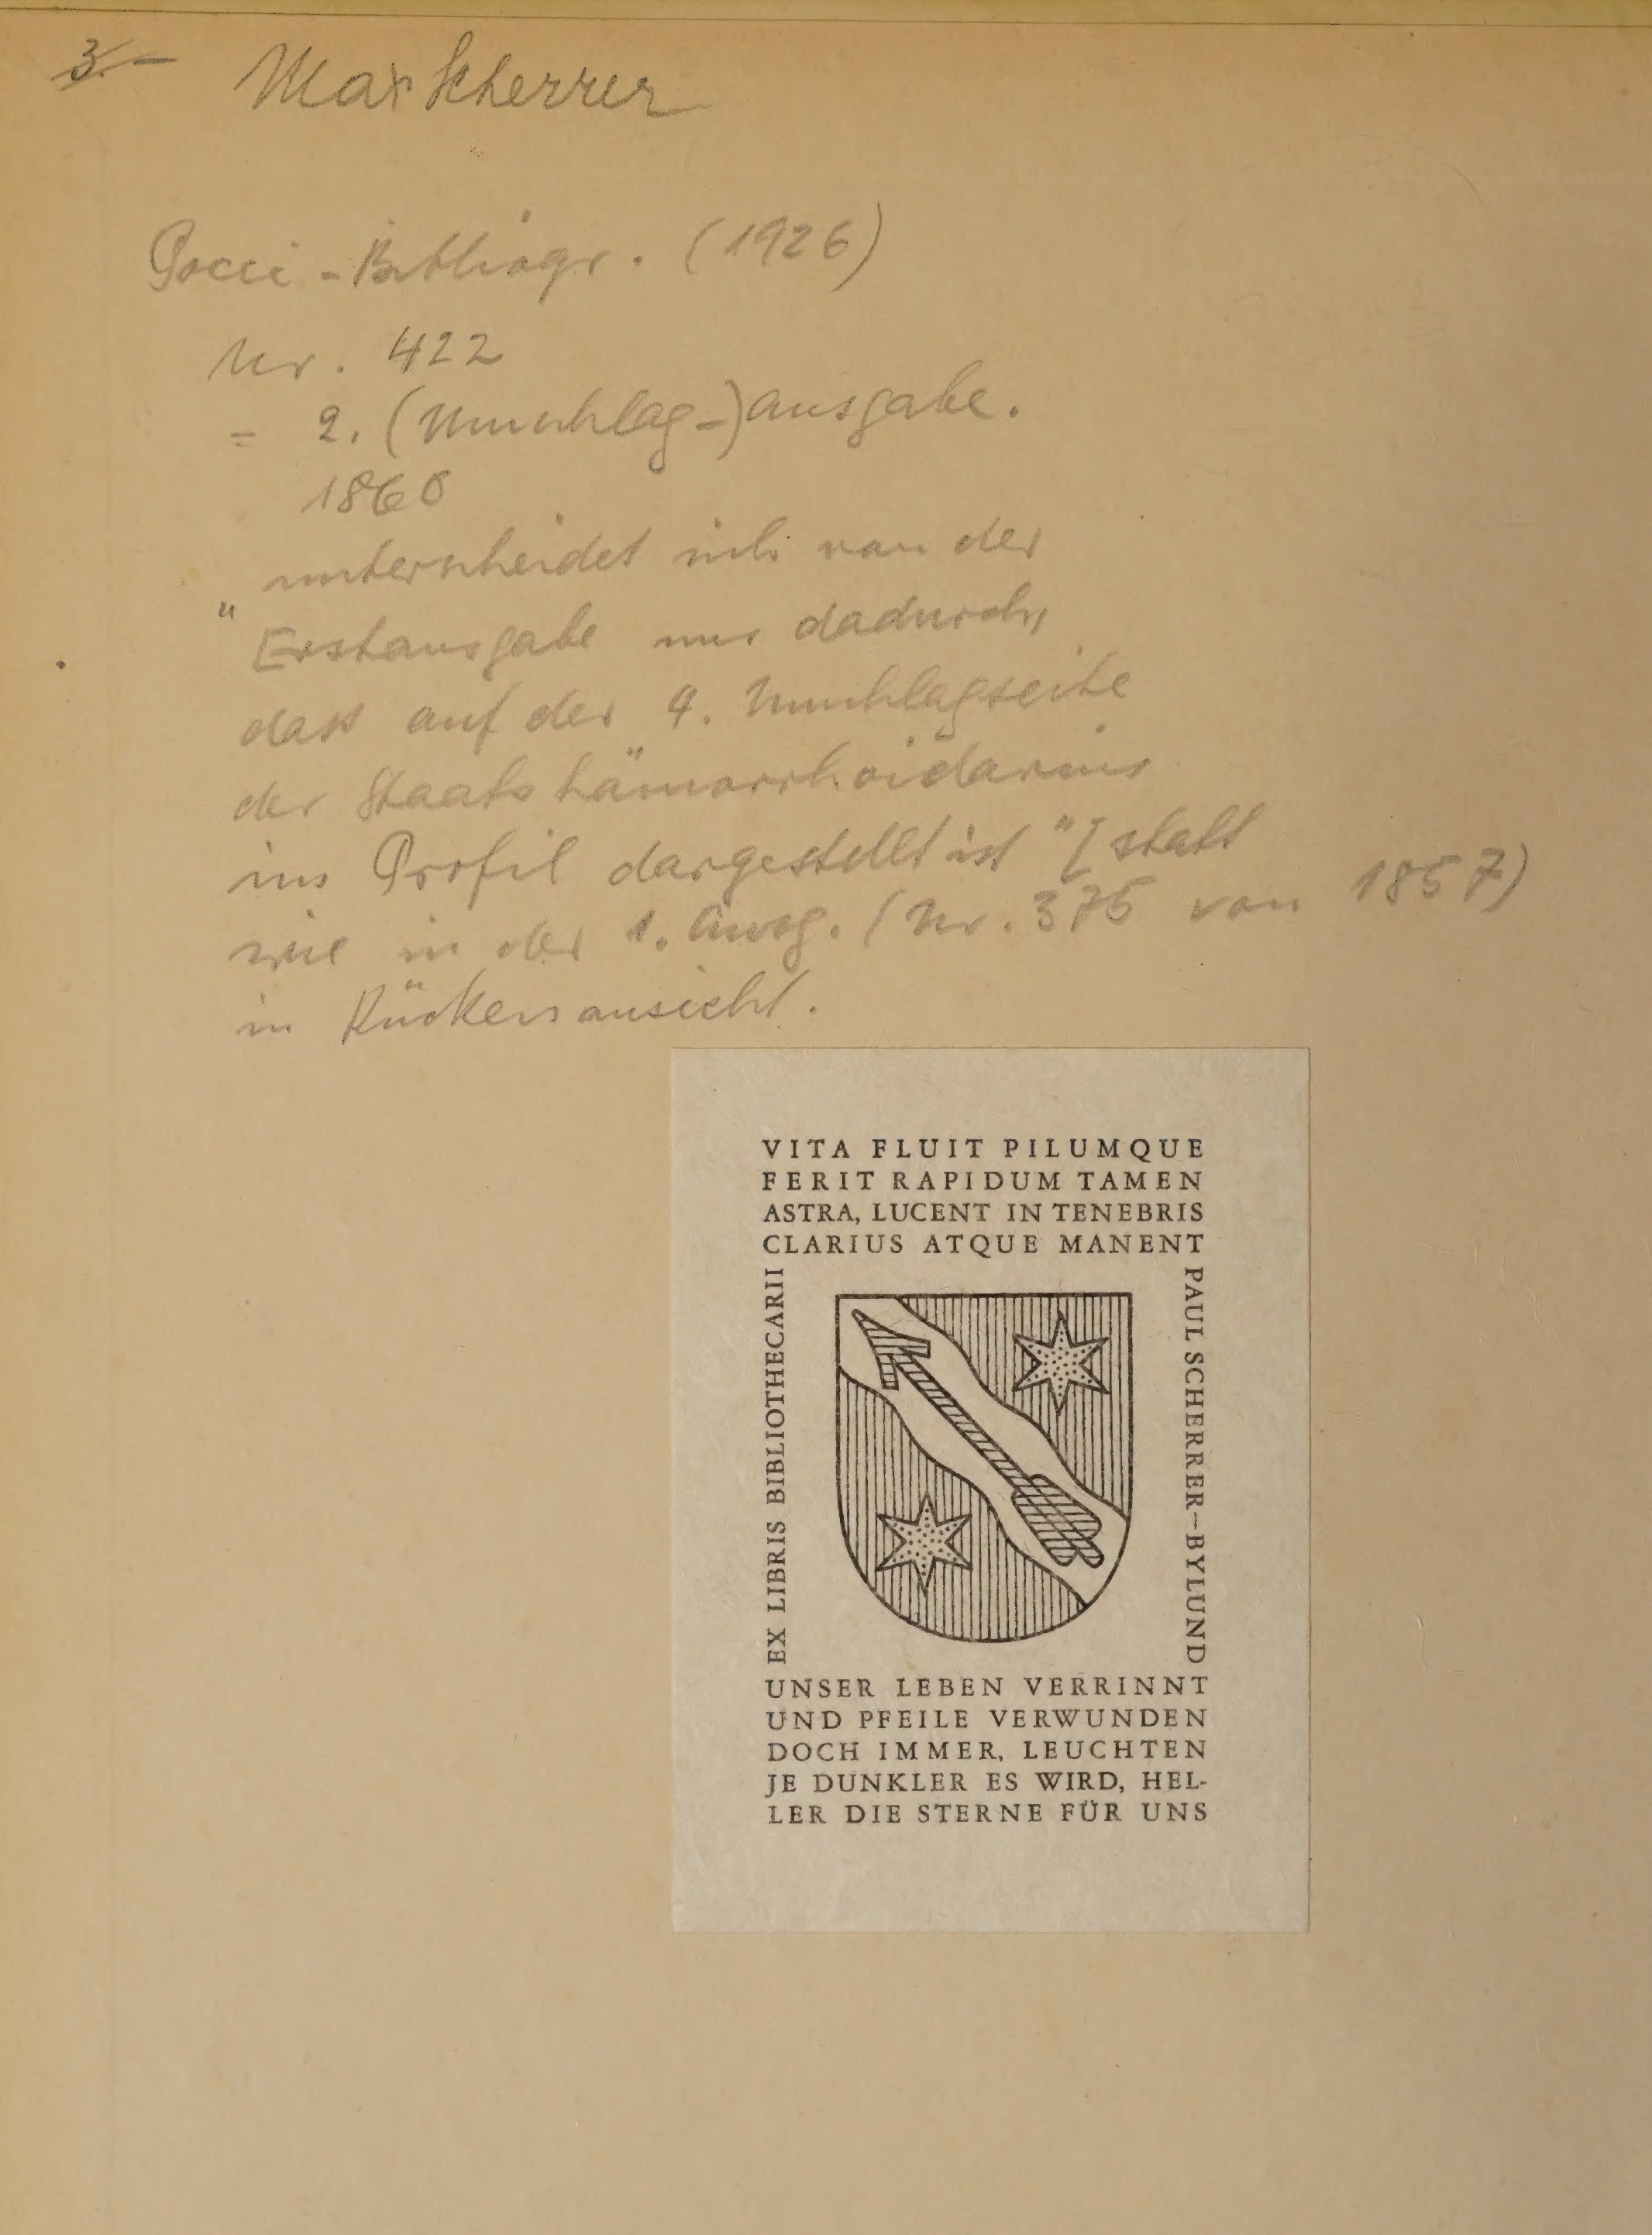 3.—
Max Scherrer
Pocci-Bibliogr. (1926)
Nr. 422
= 2. (Umschlag-)ausgabe.
1860
unterscheidet sich von der
" Erstausgabe nur dadurch,
dass auf der 4. Umschlagseite
der Staatshämorrhoidarius
im Profil dargestellt ist" [statt
wie in der 1. Ausg. (Nr. 375 von 1857)
in Rückenansicht.
VITA FLUIT PILUMQUE
FERIT RAPIDUM TAMEN
ASTRA, LUCENT IN TENEBRIS
CLARIUS ATQUE MANENT
EX LIBRIS BIBLIOTHECARII
PAUL SCHERRER–BYLUND
UNSER LEBEN VERRINNT
UND PFEILE VERWUNDEN
DOCH IMMER, LEUCHTEN
JE DUNKLER ES WIRD, HEL-
LER DIE STERNE FÜR UNS